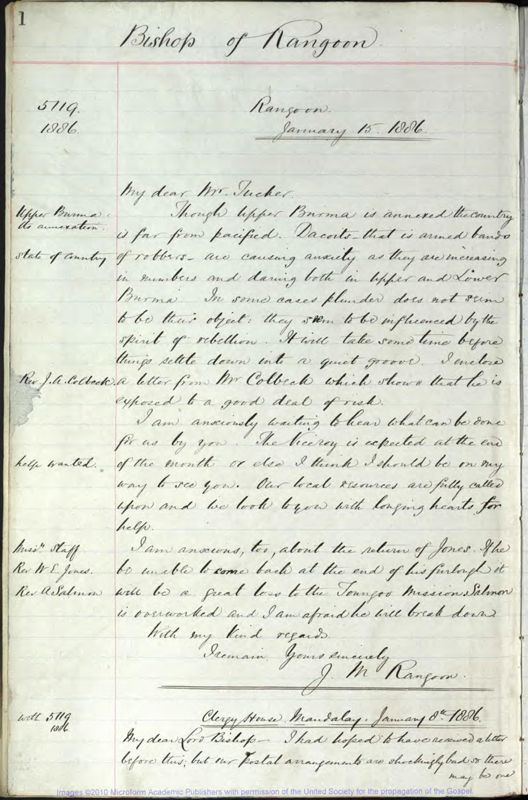 1
Bishop of Rangoon.
5719.
1886.
Rangoon
January 15. 1886.
My dear Mr. Tucker.
Upper Burma.
its annexation.
state of country
Though Upper Burma is annexed the country
is far from pacified. Dacoits - that is armed bands
of robbers - are causing anxiety as they are increasing
in numbers and daring both in Upper and Lower
Burma. In some cases plunder does not seem
to be their object: they seem to be influenced by the
spirit of rebellion. It will take some time before
things settle down into a quiet groove. I enclose
Rev. J. A. Colbeck
a letter from Mr Colbeck which shows that he is
exposed to a good deal of risk.
I am anxiously waiting to hear what can be done
for us by you. The Viceroy is expected at the end
help wanted.
of the month or else I think I should be on my
way to see you. Our local resources are fully called
upon and we look to you with longing hearts for
help.
Missy. Staff
Rev. W. E. Jones.
Rev A Salmon
I am anxious, too, about the return of Jones. If he
be unable to come back at the end of his furlough it
will be a great loss to the Toungoo Mission. Salmon
is overworked and I am afraid he will break down
With my kind regards
I remain Yours sincerely
J. M Rangoon.
with 5719
1886
Clergy House. Mandalay. January 8th 1886.
My dear Lord Bishop - I had hoped to have received a letter
before this; but our Postal arrangements are shockingly bad so there
may be one
Images ©2010 Microform Academic Publishers with permission of the United Society for the propagation of the Gospel.